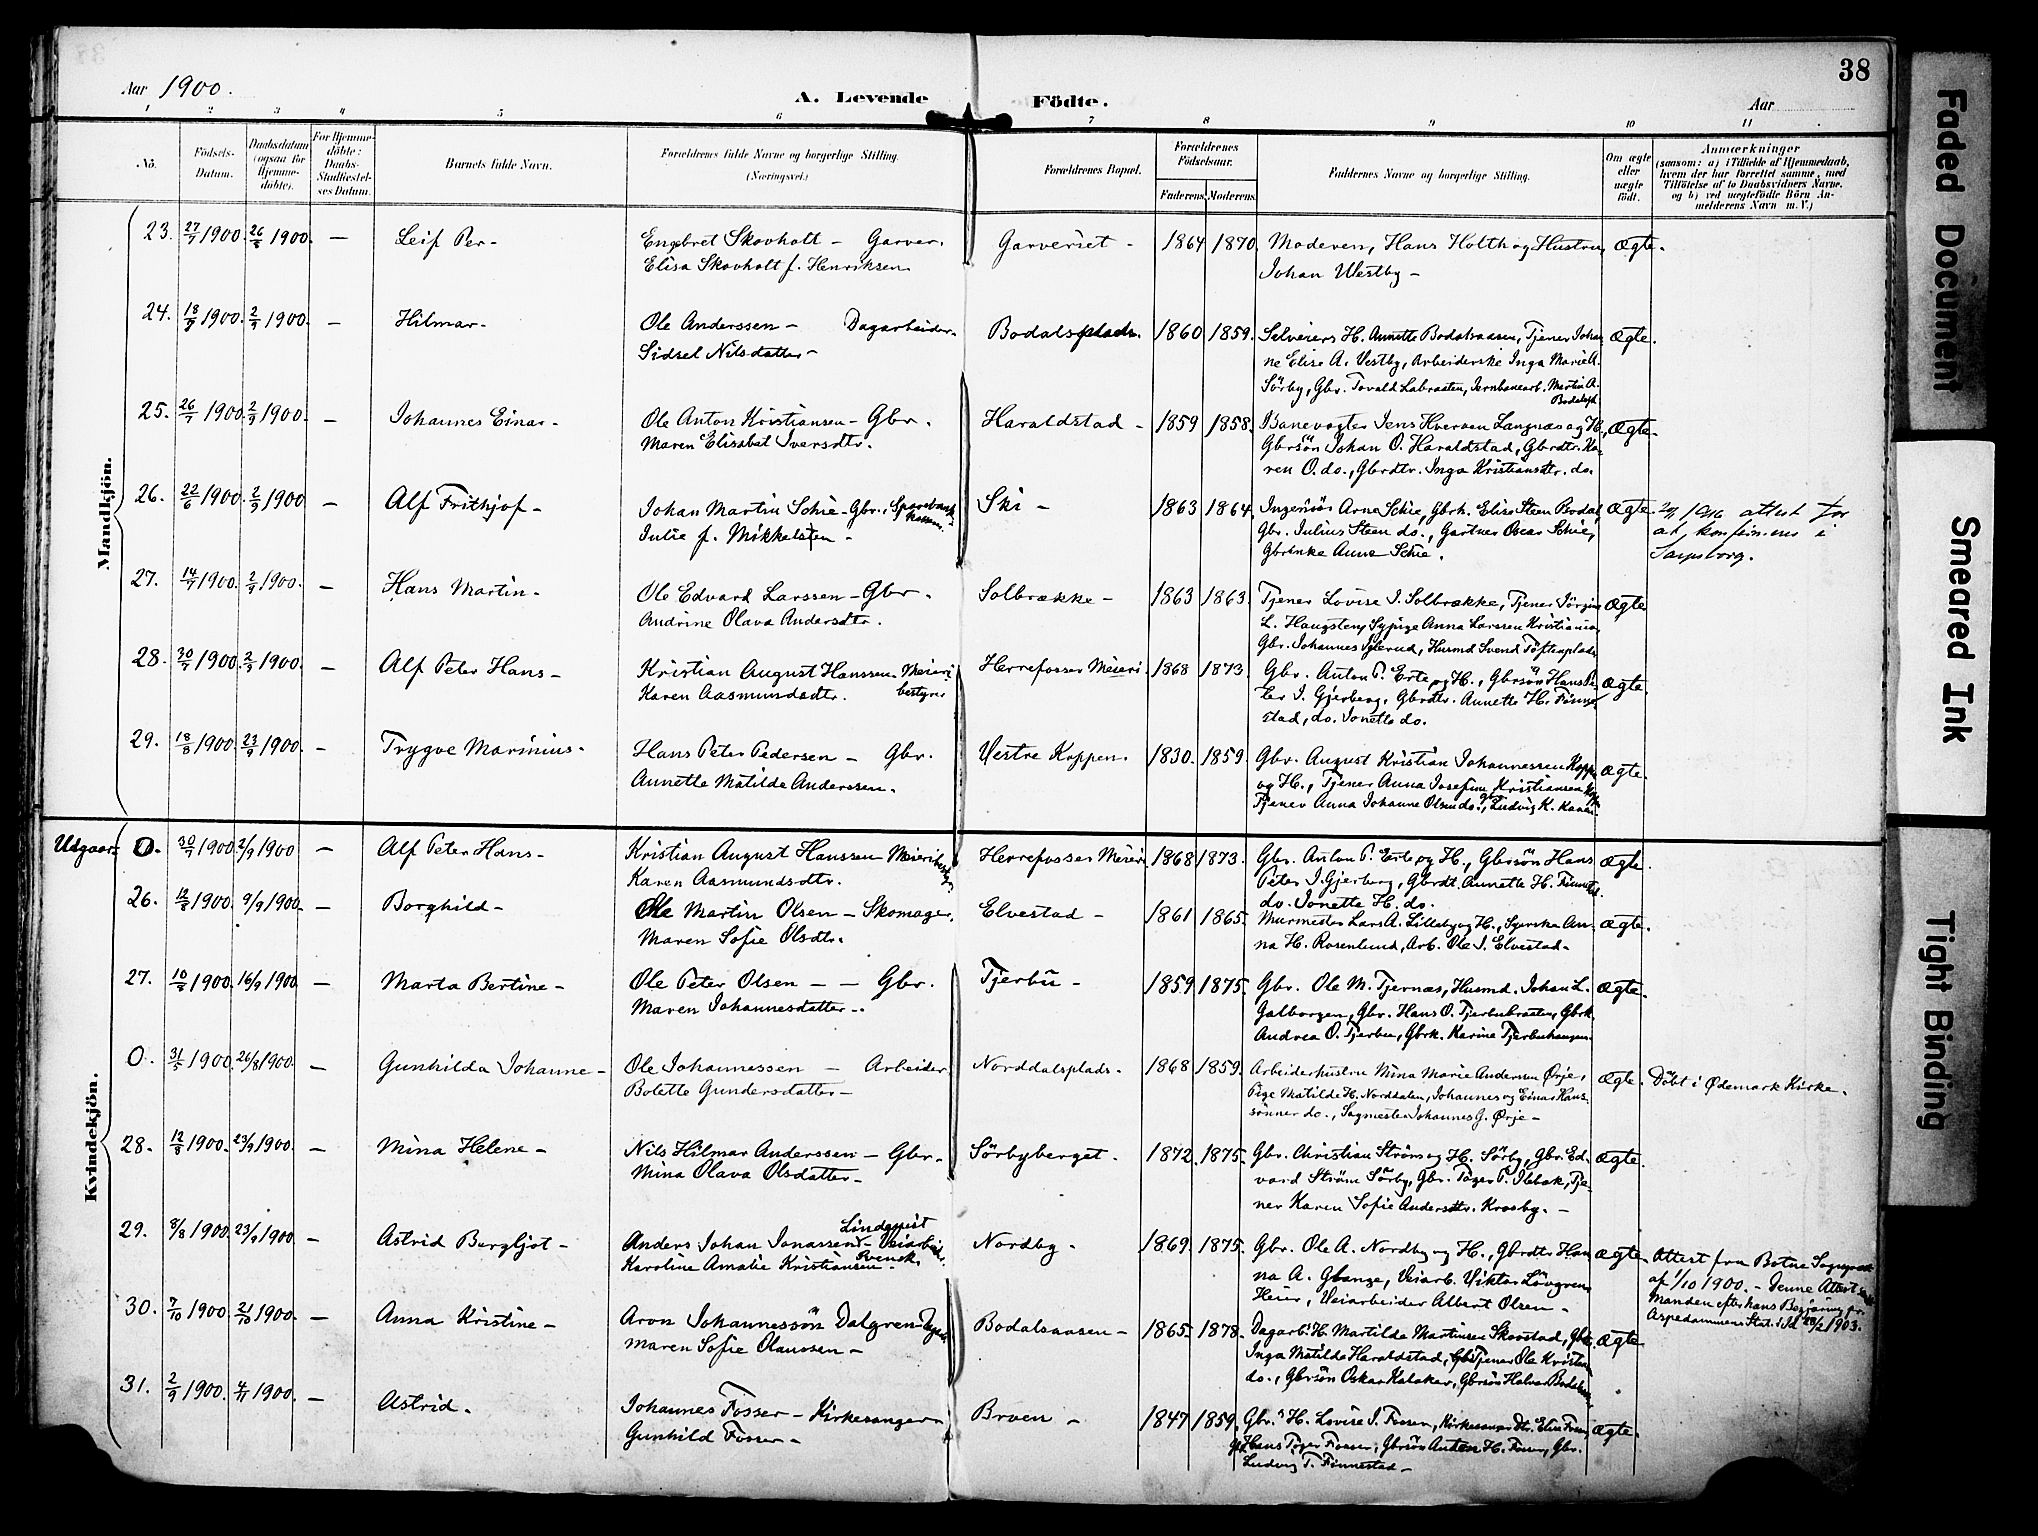 38
Aar 1900.
A. Levende Födte.
Aar
1 2 3 4 5 6 7 8 9 10 11
No. Födsels-Datum. Daabsdatum (ogsaa for Hjemmedöbte). For Hjemmedöbte: Daabs-Stadfæstelses Datum. Barnets fulde Navn. Forældrenes fulde Navne og borgerlige Stilling. (Næringsvei.) Forældrenes Bopæl. Forældrenes Födselsaar. Faderens. Moderens. Faddernes Navne og borgerlige Stilling. Om ægte eller uægte födt. Anmærkninger (saasom: a) i Tilfælde af Hjemmedaab, hvem der har forrettet samme, med Tilföielse af to Daabsvidners Navne, og b) ved uægtefödte Börn Anmelderens Navn m. V.)
Mandkjön.
23. 27/7 1900. 26/8 1900. — Leif Per - Engebret Skovholt - Garver. Garveriet - 1864 1870. Moderen, Hans Holth og Hustru, Ægte.
Elisa Skovholt f. Henriksen. Johan Westby -
24. 18/7 1900. 2/9 1900. — Hilmar - Ole Anderssen - Dagarbeider. Bodalsplads. 1860 1859. Selveiers H. Annette Bodalsaasen, Tjener Johan Ægte.
Sidsel Nilsdatter - ne Elise A. Vestby, Arbeiderske Inga Marie A.
Sörby, Gbr. Tovald Labraaten, Jernbanearb. Martin A.
25. 26/7 1900. 2/9 1900. — Johannes Einar - Ole Anton Kristiansen - Gbr. Haraldstad - 1859 1858. Banevogter Jens Hversen Langnæs og H., Ægte.
Maren Elisabet Iversdtr. Gbrsön Johan O. Haraldstad, Gbrdtr. Ka-
ren O. do., Gbrdtr. Inga Kristiansdtr. do.
26. 22/6 1900. 2/9 1900 — Alf Frithjof - Johan Martin Schie - Gbr., Ski - 1863 1864. Ingeniör Arne Schie, Gbrk. Elise Steen Bodal, Ægte. attest for
Julie f. Mikkelsten - Gbr. Julius Steen do., Gartner Oscar Schie, at konfirmeres i
Gbrenke Anne Schie. Sarpsborg.
27. 14/7 1900. 2/9 1900. — Hans Martin - Ole Edvard Larssen - Gbr. Solbrække - 1863 1863. Tjener Lovise J. Solbrække, Tjener Jörgine Ægte
Andrine Olava Andersdtr. L. Haugsten, Sypige Anna Larssen Kristiania,
Gbr. Johannes, Husmd. Svend Töftenplads
28. 30/7 1900. 2/9 1900. — Alf Peter Hans - Kristian August Hanssen - Meieri- Herrefosser Meieri. 1868 1873. Gbr. Anton P. Erte og H., Gbrsön Hans Pe- Ægte.
Karen Aasmundsdtr. bestyrer ter I. Gjerberg, Gbrdtr. Annette H. Finne-
stad, do. Jonette do.
29. 18/8 1900. 23/9 1900. — Trygve Marinius - Hans Peter Pedersen - Gbr. Vestre Koppen. 1830. 1859. Gbr. August Kristian Johannessen Kopp. Ægte.
Annette Matilde Anderssen. og H., Tjener Anna Josefine Kristiansen
Tjener Anna Johanne Olsen do., Ludvig K.
Kvindekjön.
Udgaar: 0. 30/7 1900. 2/9 1900 — Alf Peter Hans - Kristian August Hanssen Meieribestyr. Herrefosser Meieri 1868 1873. Gbr. Anton P. Erte og H., Gbrsön Hans Ægte.
Karen Aasmundsdtr. Peter I. Gjerberg, Gbrdt. Annette H. Finnestd.
do. Jonette H. do.
26. 12/8 1900. 9/9 1900. — Borghild - Ole Martin Olsen - Skomager. Elvestad - 1861 1865. Murmester Lars A. Lilleby og H., Syerske An- Ægte.
Maren Sofie Olsdtr. na H. Rosenlund, Arb. Ole J. Elvestad -
27. 10/8 1900. 16/9 1900. — Marta Bertine - Ole Peter Olsen - - Gbr. Tjerbu - 1859 1875. Gbr. Ole M. Tjernæs, Husmd. Johan L. Ægte.
Maren Johannesdatter - Galborgen, Gbr. Hans O. Tjerbubraaten, Gbrk.
Andrea O. Tjerbu, Gbrk. Karine Tjerbuhaugen.
0. 31/5 1900. 26/8 1900. — Gunhilda Johanne - Ole Johannessen - Arbeider. Norddalsplads. 1868 1859. Arbeiderhustru Mina Marie Andersen Ørje, Ægte. Döbt i Ødemark Kirke.
Bolette Gundersdatter - Pige Matilde H. Norddalen, Johannes og Einar Hans-
sönner do., Sagmester Johannes G. Ørje -
28. 12/8 1900. 23/9 1900. — Mina Helene - Nils Hilmar Anderssen - Gbr. Sörbyberget. 1872. 1875. Gbr. Christian Ström og H. Sörby, Gbr. Ed- Ægte.
Mina Olava Olsdatter - vard Ström Sörby, Gbr. Töger P. Ilebæk, Tje-
ner Karen Sofie Andersdtr. Krosby. -
29. 8/8 1900. 23/9 1900 — Astrid Bergljot - Anders Johan Jonassen Lindqvist - Veiarbeid. Nordby - 1869. 1875. Gbr. Ole A. Nordby og H., Gbrdtr. Han- Ægte. Attest fra Botne Sogneprest
Karoline Amalie Kristiansen. Svensk. na A. Glange, Veiarb. Viktor Lövgren af 1/10 1900. - Denne Attest
Heier, Veiarbeider Albert Olsen - Manden efter hans Begjæring pr.
Aspedammen Stat. i Id 28/2 1903.
30. 7/10 1900. 21/10 1900. — Anna Kristine - Aron Johannessön Dalgren Bodalsaasen - 1865. 1878. Dagarb. H. Martilda Martinsen Skovstad, Ægte
Maren Sofie Olaussen - Inga Matilde Haraldstad, Tjener Ole Kristian
do., Gbrsön Oskar Kalaker, Gbrsön Halvor Bodals
31. 2/9 1900. 4/11 1900. — Astrid. Johannes Fosser - Kirkesanger. Broen - 1847 1859. Gbr. H. Lovise J. Fosser, Kirkesanger Dtr. Elise Fosser, Ægte.
Gunhild Fosser - Hans Töger Fosser, Gbrsön Anton H. Fosser, Gbr.
Ludvig T. Finnestad -
Faded Document
Smeared Ink
Tight Binding